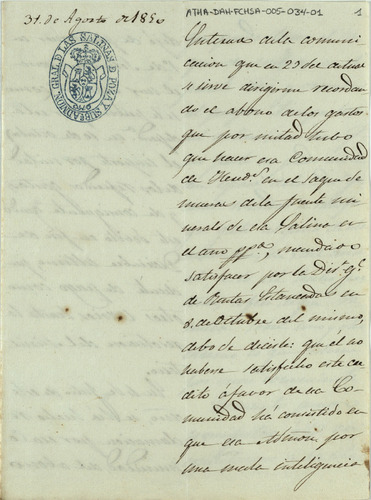 31. de Agosto de 1850
ATHA-DAH-FCHSA-005-034-01
1
ADMON. GRAL. D LAS SALINAS D POZA Y SU PARTIDO
Enterado de la comuni
cacion que en 23 del actual
se sirve dirigirme recordan
do el abono de los gastos
que por mitad tubo
que hacer esa Comunidad
de Hered.s en el saque de
mueras de la fuente mi
neral de esa Salina en
el ano pp.o, mandado
satisfacer por la Dir.n g.l
de Rentas Estancadas en
8. de Octubre del mismo,
debo de decirle: que el no
haberse satisfecho este cre
dito á favor de esa Co
munidad há consistido en
que esa Admon. por
una mala inteligencia